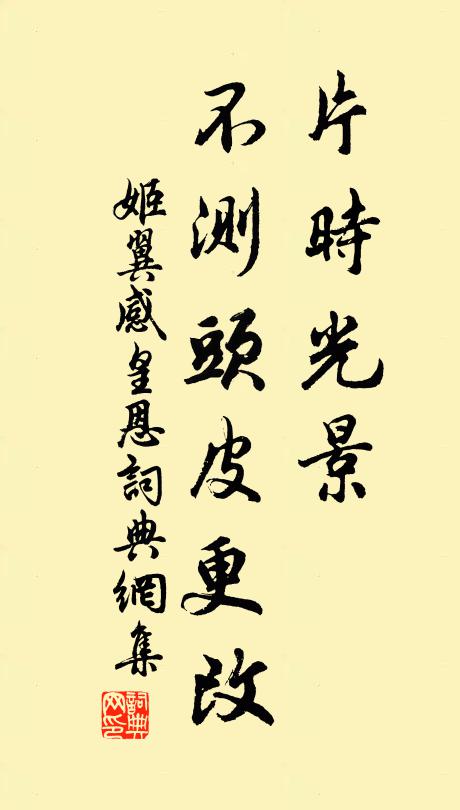 片時光景
不測頭皮更改
姬翼感皇恩詞典網集
詞典网印